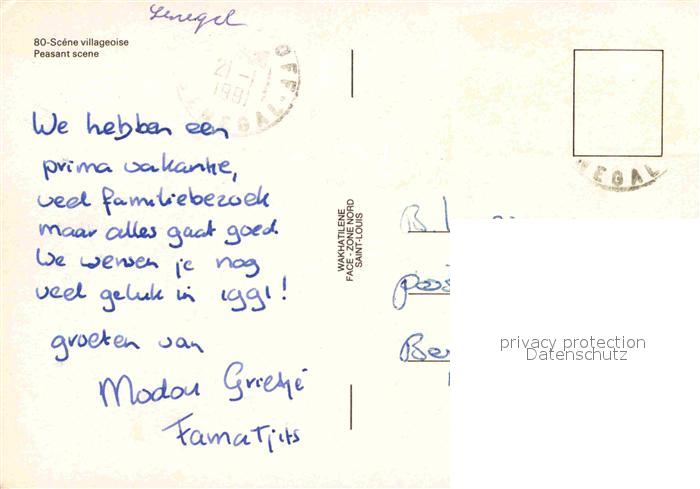 Senegal
80-Scéne villageoise
Peasant scene
21-1
1991
SENEGAL
We hebben een
prima vakantie,
veel familiebezoek
maar alles gaat goed
We wensen je nog
veel geluk in 1991!
groeten van
Modou Grietje
Fama Tjits
WAKHATILENE
FACE - ZONE NORD
SAINT-LOUIS
NEGAL
B.
privacy protection
Datenschutz